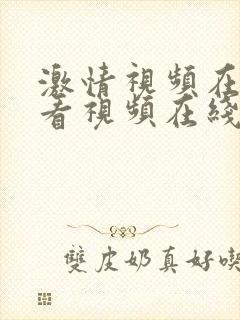 激情視頻在
看視頻在綫
雙皮奶真好喫